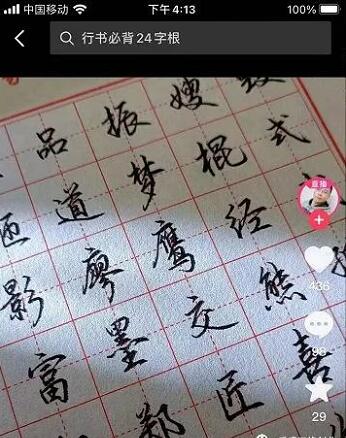 中国移动
下午4:13
100%
行书必背24字根
品振嫂
道梦棍式
匝
廖鹰经
影
墨交熊
富
匠喜
郑
直播
436
98
29